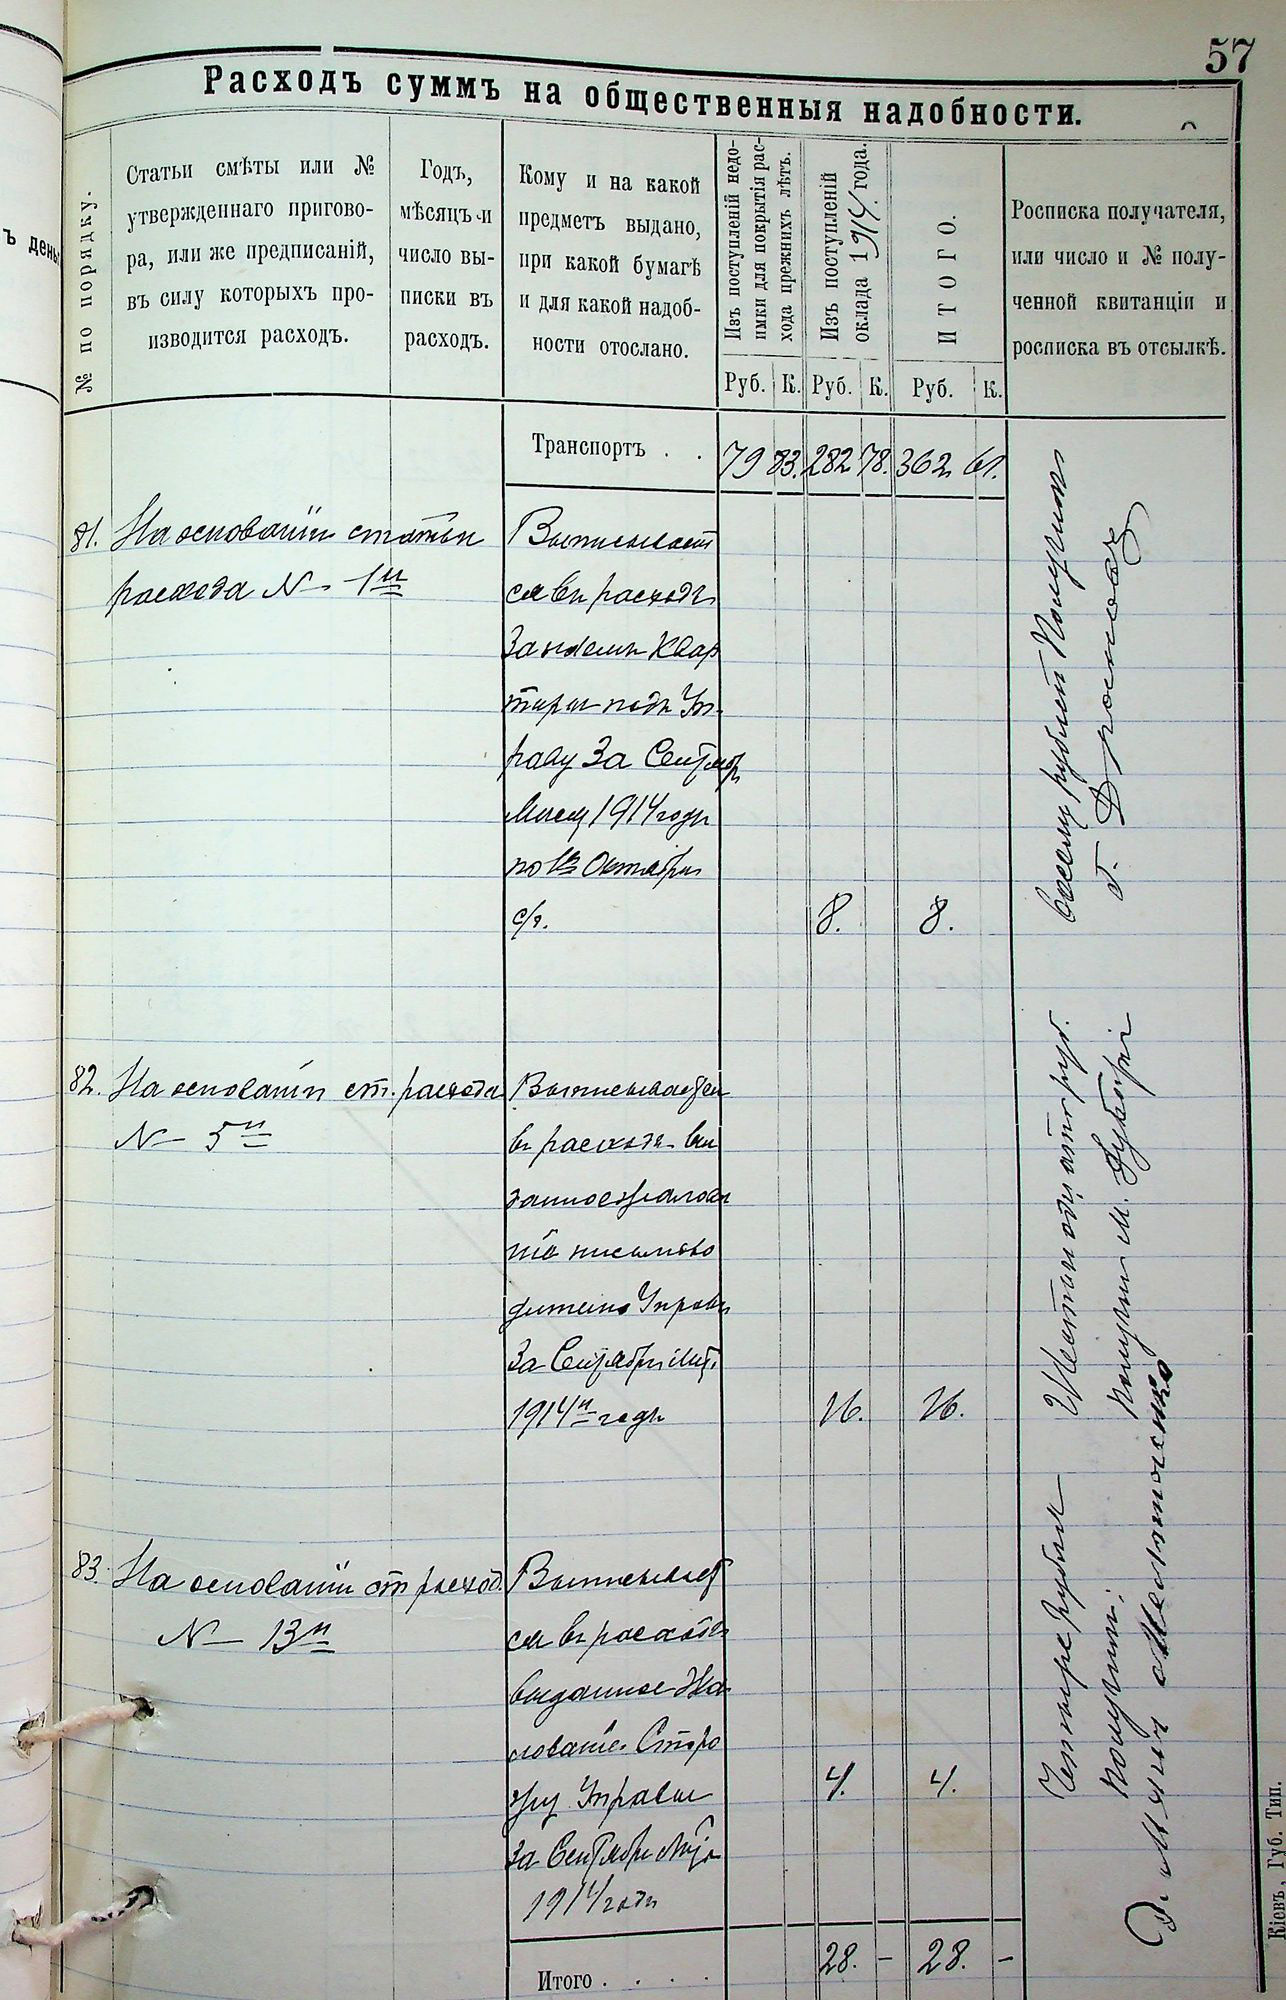 57
Расходъ суммъ на общественныя надобности.
№ по порядку.
Статьи смѣты или №
утвержденнаго пригово-
ра, или же предписаній,
въ силу которыхъ про-
изводится расходъ.
Годъ,
мѣсяцъ и
число вы-
писки въ
расходъ.
Кому и на какой
предметъ выдано,
при какой бумагѣ
и для какой надоб-
ности отослано.
Изъ поступленій недо-
имки для покрытія рас-
хода прежнихъ лѣтъ.
Изъ поступленій
оклада 1914 года.
ИТОГО.
Росписка получателя,
или число и № полу-
ченной квитанціи и
росписка въ отсылкѣ.
Руб. К. Руб. К. Руб. К.
Транспортъ . . 79 83. 282 78. 362 61.
81. На основаніи статьи
расхода № 1й
Выписывает
ся въ расходъ
За наемъ квар
тиры подъ Уп-
раву За Сентябр
Мѣсяц 1914 годъ
по 1е Октября
с/г.
8. 8.
Восемь рублей Получилъ
82. На основаніи ст. расхода
№ 5й
Выписывается
въ расходъ вы
данное жалова
ніе письмово
дителю Управы
За Сентябрь Мц.
1914й годъ
16. 16.
Шестнадцать руб.
получилъ М.
83. На основаніи ст расход.
№ 13й
Выписывает
ся въ расходъ
выданное Жа
лованіе Сторо
жу Управы
за Сентябрь Мц
1914 годъ
4. 4.
Четыре рубля
получилъ:
Итого . . . . 28. - 28. -
Кіевъ, Губ. Тип.
ъ день